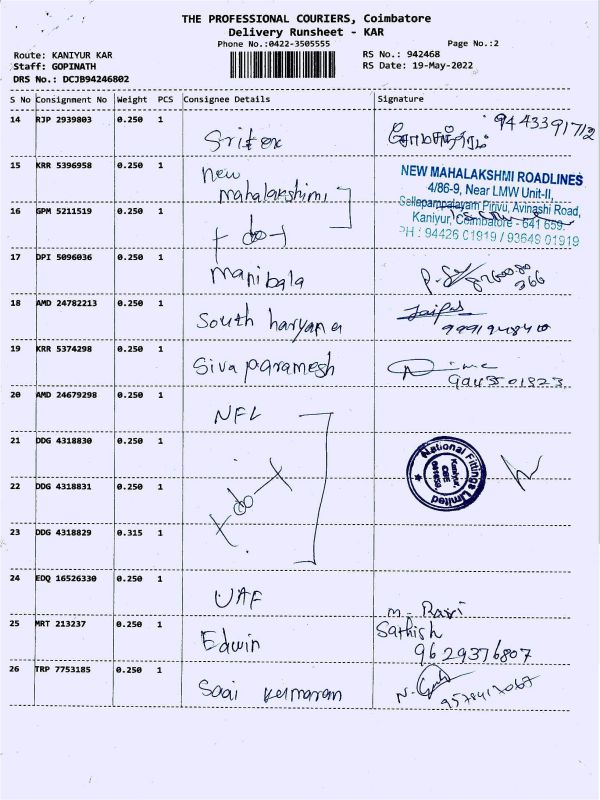 THE PROFESSIONAL COURIERS, Coimbatore
Delivery Runsheet - KAR
Phone No.:0422-3505555
Page No.:2
Route: KANIYUR KAR
RS No.: 942468
Staff: GOPINATH
RS Date: 19-May-2022
DRS No.: DCJB94246802
S No Consignment No Weight PCS Consignee Details Signature
14 RJP 2939803 0.250 1 9443391712
15 KRR 5396958 0.250 1 New
mahalakshimi
NEW MAHALAKSHMI ROADLINES
4/86-9, Near LMW Unit-II,
Sellapampalayam Pirivu, Avinashi Road,
Kaniyur, Coimbatore - 641 659.
PH : 94426 01919 / 93649 01919
16 GPM 5211519 0.250 1 do
17 DPI 5096036 0.250 1 Manibala
18 AMD 24782213 0.250 1 South haryana
19 KRR 5374298 0.250 1 Siva paramesh
20 AMD 24679298 0.250 1 NFL
21 DDG 4318830 0.250 1
National Fittings Limited
Kaniyur,
22 DDG 4318831 0.250 1 do
23 DDG 4318829 0.315 1
24 EDQ 16526330 0.250 1 UAF M. Ravi
25 MRT 213237 0.250 1 Edwin Sathish
9629376807
26 TRP 7753185 0.250 1 Saai kumaran 9578417067